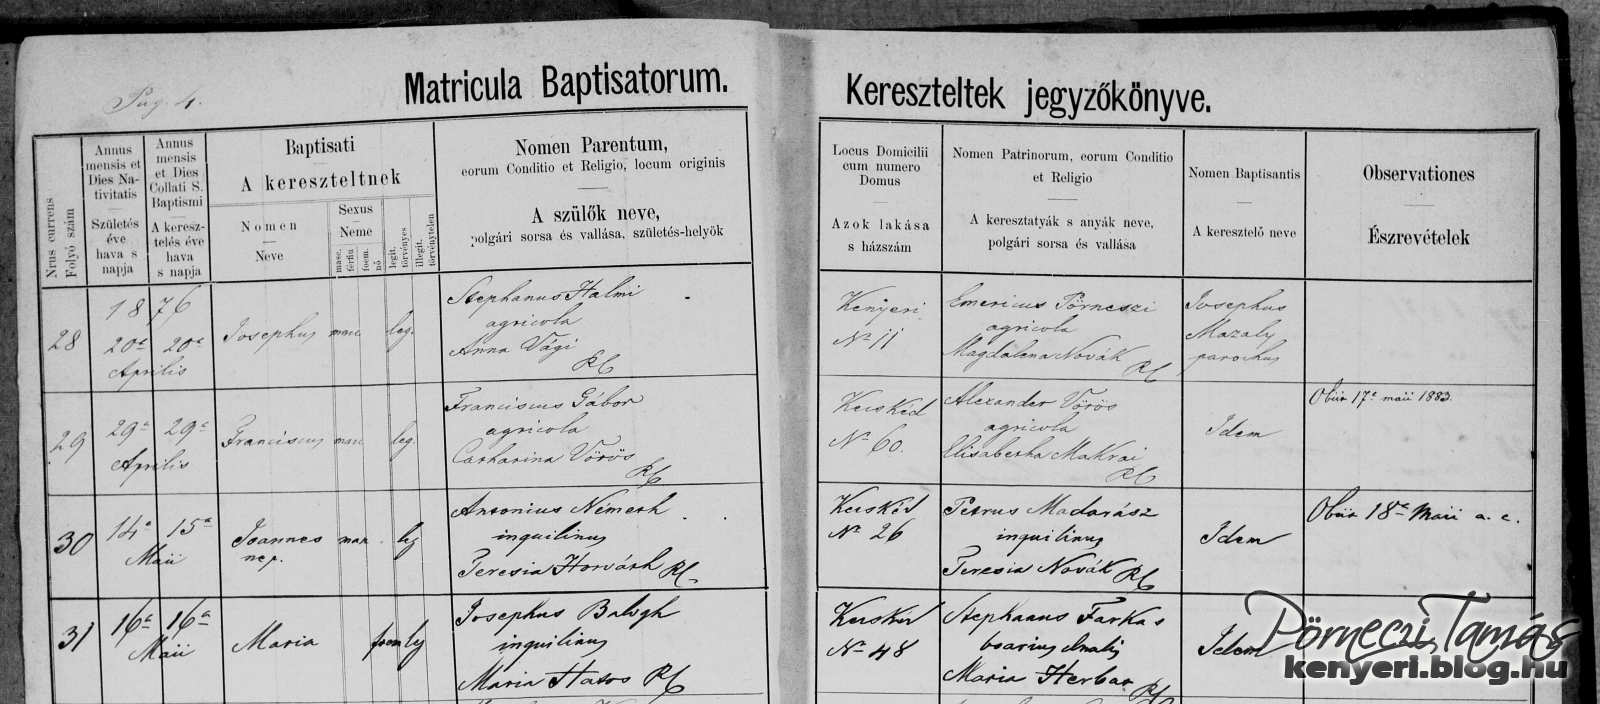 Pag. 4.
Matricula Baptisatorum.
Kereszteltek jegyzőkönyve.
Nrus currens
Folyó szám
Annus
mensis et
Dies Na-
tivitatis
Születés
éve
hava s
napja
Annus
mensis
et Dies
Collati S.
Baptismi
A keresz-
telés éve
hava
s napja
Baptisati
A kereszteltnek
Nomen
Neve
Sexus
Neme
masc.
férfiu
foem.
nő
legit.
törvényes
illegit.
törvénytelen
Nomen Parentum,
eorum Conditio et Religio, locum originis
A szülők neve,
polgári sorsa és vallása, születés-helyök
Locus Domicilii
cum numero
Domus
Azok lakása
s házszám
Nomen Patrinorum, eorum Conditio
et Religio
A keresztatyák s anyák neve,
polgári sorsa és vallása
Nomen Baptisantis
A keresztelő neve
Observationes
Észrevételek
1876
28
20a 20a
Aprilis
Josephus masc leg.
Stephanus Halmi
agricola
Anna Vági
RC
Kenyeri
No 11
Emericus Pörneczi
agricola
Magdalena Novák
RC
Josephus
Mazaly
parochus
29
29a 29a
Aprilis
Franciscus masc leg.
Franciscus Gábor
agricola
Catharina Vörös
RC
Kecskéd
No 60.
Alexander Vörös
agricola
Elisabetha Makrai
RC
Idem
Obiit 17a maii 1883.
30
14a 15a
Maii
Joannes
nep.
mas. leg
Antonius Németh
inquilinus
Teresia Horváth RC
Kecskéd
No 26
Petrus Madarász
inquilinus
Teresia Novák RC
Idem
Obiit 18a Maii a. c.
31
16a 16a
Maii
Maria foem leg
Josephus Balogh
inquilinus
Maria Hatos RC
Kecskéd
No 48
Stephanus Farkas
Maria Herbar RC
Idem
Pörneczi Tamás
kenyeri.blog.hu